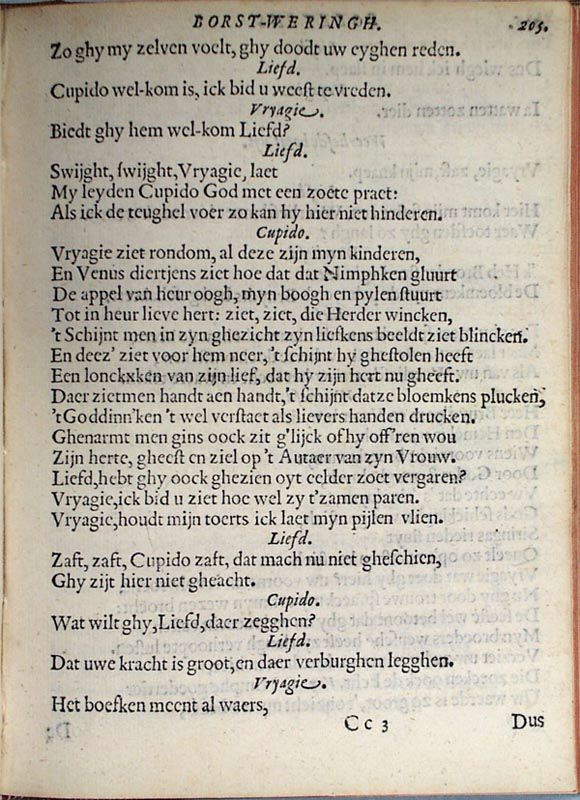 BORST-WERINGH. 205.
Zo ghy my zelven voelt, ghy doodt uw eyghen reden.
Liefd.
Cupido wel-kom is, ick bid u weest te vreden.
Vryagie.
Biedt ghy hem wel-kom Liefd?
Liefd.
Swijght, swijght, Vryagie, laet
My leyden Cupido God met een zoete praet:
Als ick de teughel voer zo kan hy hier niet hinderen.
Cupido.
Vryagie ziet rondom, al deze zijn myn kinderen,
En Venus diertjens ziet hoe dat dat Nimphken gluurt
De appel van heur oogh, myn boogh en pylen stuurt
Tot in heur lieve hert: ziet, ziet, die Herder wincken,
't Schijnt men in zyn ghezicht zyn liefkens beeldt ziet blincken.
En deez' ziet voor hem neer, 't schijnt hy ghestolen heeft
Een lonckxken van zijn lief, dat hy zijn hert nu gheeft.
Daer zietmen handt aen handt, 't schijnt datze bloemkens plucken,
't Goddinn'ken 't wel verstaet als lievers handen drucken.
Ghenarmt men gins oock zit g'lijck of hy off'ren wou
Zijn herte, gheest en ziel op 't Autaer van zyn Vrouw.
Liefd, hebt ghy oock ghezien oyt eelder zoet vergaren?
Vryagie, ick bid u ziet hoe wel zy t'zamen paren.
Vryagie, houdt mijn toerts ick laet myn pijlen vlien.
Liefd.
Zaft, zaft, Cupido zaft, dat mach nu niet gheschien,
Ghy zijt hier niet gheacht.
Cupido.
Wat wilt ghy, Liefd, daer zegghen?
Liefd.
Dat uwe kracht is groot, en daer verburghen legghen.
Vryagie.
Het boefken meent al waers,
Cc 3 Dus